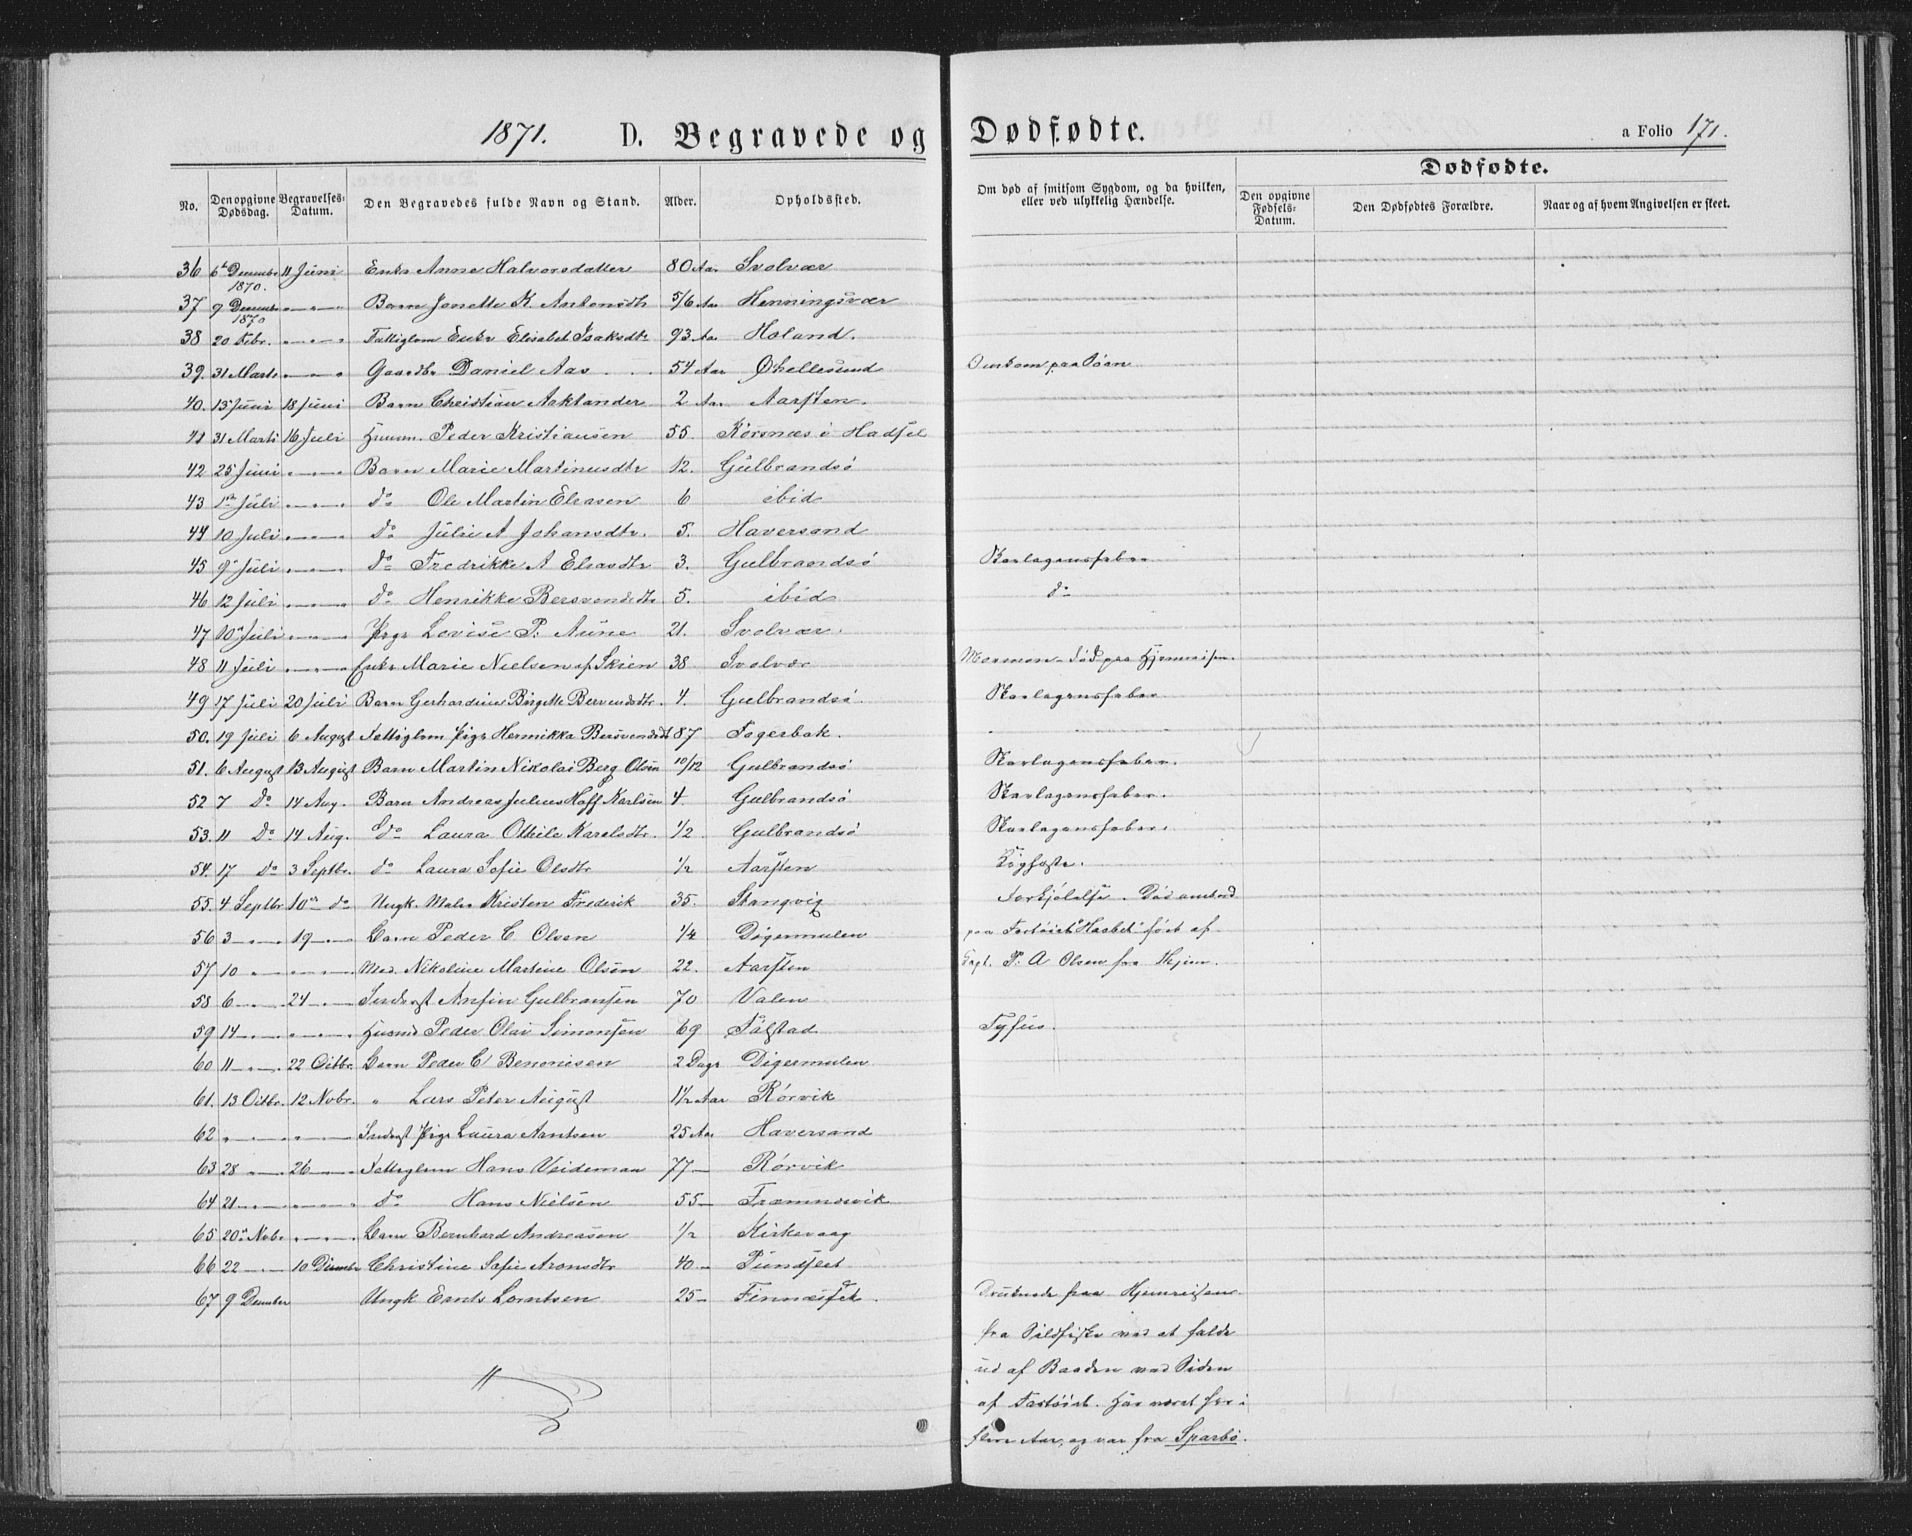 1871. D. Begravede og Dødfødte. a Folio 171.
No. Den opgivne Dødsdag. Begravelses-Datum. Den Begravedes fulde Navn og Stand. Alder. Opholdssted. Om død af smitsom Sygdom, og da hvilken, eller ved ulykkelig Hændelse. Dødfødte.
Den opgivne Fødsels-Datum. Den Dødfødtes Forældre. Naar og af hvem Angivelsen er skeet.
36 6te Decembr 1870. 11 Juni Enke Anne Halvorsdatter 80 Aar Svolvær
37 9 Decembr 1870 " Barn Jonette K. Antonsdtr 5/6 Aar Henningsvær
38 20 Febr. " Fattiglem Enke Elisabet Isaksdtr 93 Aar Holand.
39. 31 Marts " Gaardbr Daniel Aas 54 Aar Øhellesund Omkom paa Søen
40. 13 Juni 18 Juni Barn Christian Aaklander 2 Aar Aarsten.
41 31 Marts 16 Juli Husm. Peder Kristiansen 55. Korsnæs i Hadsel
42 25 Juni " Barn Marie Martinusdtr 12. Gulbrandsö
43 1st Juli " do Ole Martin Eliasen 6 ibid
44 10 Juli " do Julie A Johansdtr. 5. Haversand
45 9 Juli " do Fredrikke A Eliasdtr 3. Gulbrandsö Skarlagensfeber
46 12 Juli " do Henrikke Bersvendsdtr 5. ibid do
47 10 Juli " Pige Lovise P. Aune 21. Svolvær.
48 11 Juli " Enke Marie Nielsen af Skien 38 Svolvær Mormon - død paa Hjemreisen.
49 17 Juli 20 Juli Barn Gerhardine Birgitte Bersvendsdtr. 4. Gulbrandsö. Skarlagensfeber
50. 19 Juli 6 August Fattiglem Pige Hennikka Bersvendsdt 87 Fagerbak.
51. 6 August 13 August Barn Martin Nikolai Berg Olsen 10/12 Gulbrandsö Skarlagensfeber.
52 7 Do 14 Aug. Barn Andreas Julius Hoff Karlsen 4 Gulbrandsö Skarlagensfeber.
53. 11 Do 14 Aug. do Laura Ottile Karelsdtr. 1/2 Gulbrandsö Skarlagensfeber.
54. 17 do 3 Septbr. do Laura Sofie Olsdtr 1/2 Aarsten Kighoste.
55. 4 Septbr 10 do Ungk. Maler Kristen Frederik 35. Skongvig Forkjölelse. Död ombord
56 3 " 19 " Barn Peder C. Olsen 1/4 Digermulen paa Fartöiet "Haabet" fört af
57 10 " " Mad. Nikoline Martine Olsen 22. Aarsten Capt. P. A Olsen fra Skjem.
58 6 " 24 " Inderst Anfin Gulbransen 70 Valen
59 14 " " Husmd Peder Olai Simonsen 69 Falstad Tyfus.
60 11 " 22 Octbr. Barn Peder C Benonisen 2 Dage Digermulen
61. 13 Octbr. 12 Novbr. " Lars Peter August 1 1/2 Aar Rörvik
62 " " Inderst Pige Laura Arntsen 25 Aar Haversand
63 28 " 26 " Fattiglem Hans Veideman 77 — Rörvik
64 21 " " do Hans Nielsen 55 — Framnesvik
65 20 Novbr " Barn Bernhard Andreasen 1/2 Kirkevaag
66 22 " 10 Decembr Christine Sofie Aronsdtr 40 — Pundslet
67 9 December Ungk Ernts Lorntsen 25 — Finnæsset. Druknede paa Hjemreisen
fra Sildfiske ved at falde
ud af Baaden ved Siden
af Fartöiet. Har været her i
flere Aar, og var fra Sparbo.